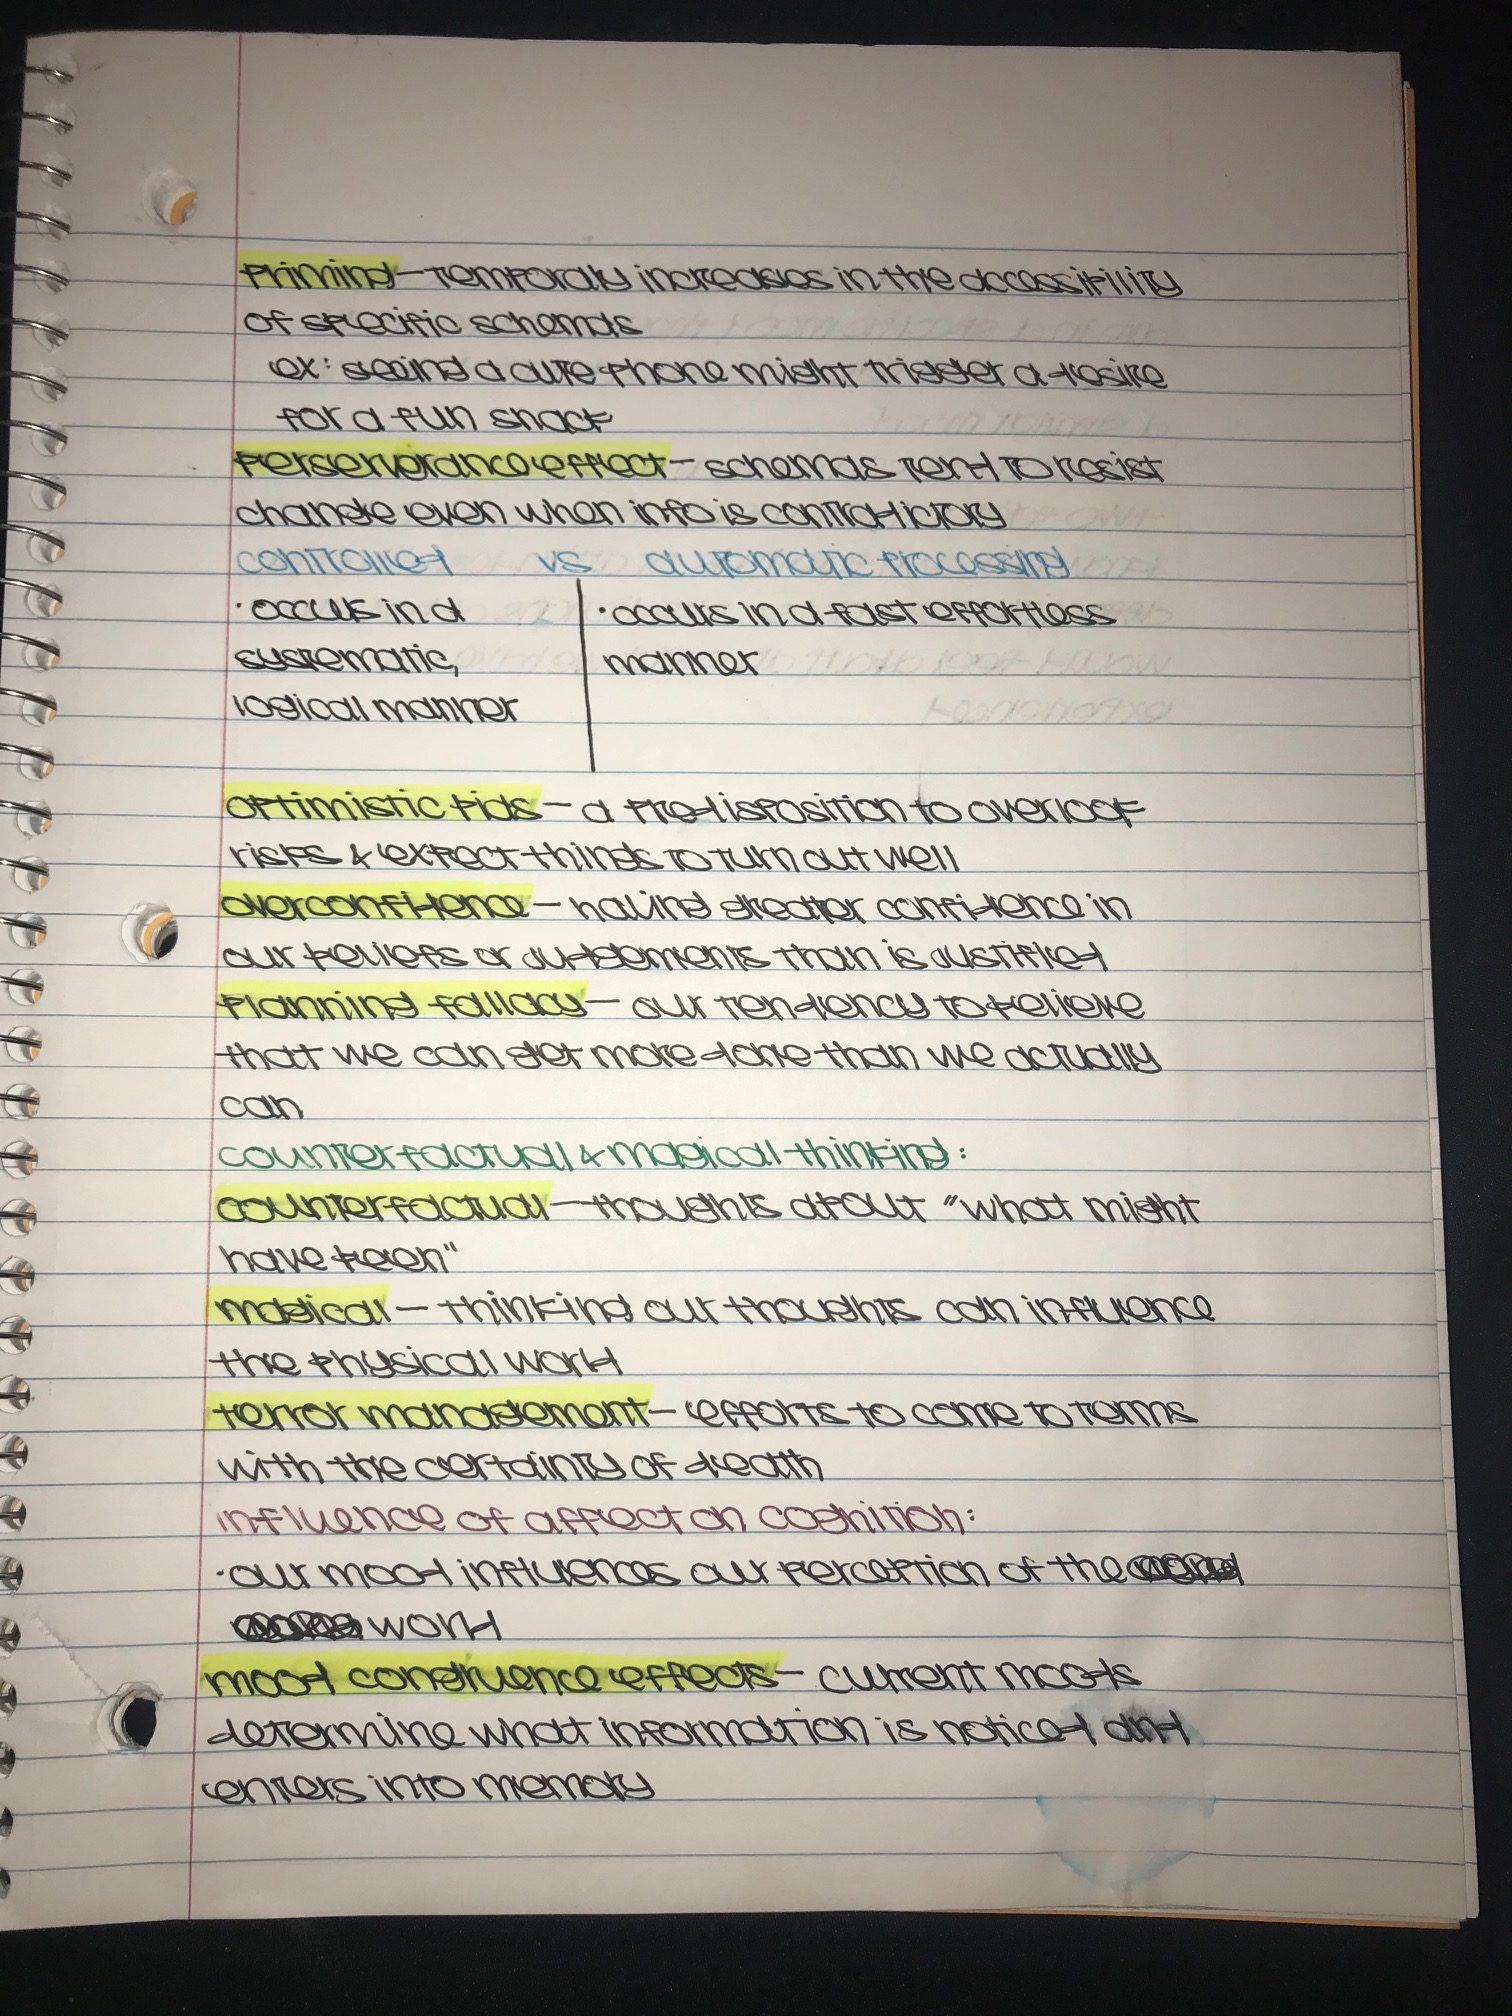 priming – temporaly increases in the accessibility
of specific schemas
ex: seeing a cute phone might trigger a desire
for a fun snack
perserverance effect – schemas tend to resist
change even when info is contradictory
controlled vs automatic processing
· occurs in a
systematic,
logical manner
· occurs in a fast effortless
manner
optimistic bias – a predisposition to overlook
risks & expect things to turn out well
overconfidence – having greater confidence in
our beliefs or judgements than is justified
planning fallacy – our tendency to believe
that we can get more done than we actually
can
counterfactual & magical thinking:
counterfactual – thoughts about "what might
have been"
magical – thinking our thoughts can influence
the physical world
terror management – efforts to come to terms
with the certainty of death
influence of affect on cognition:
· our mood influences our perception of the
world
mood congruence effects – current moods
determine what information is noticed and
enters into memory